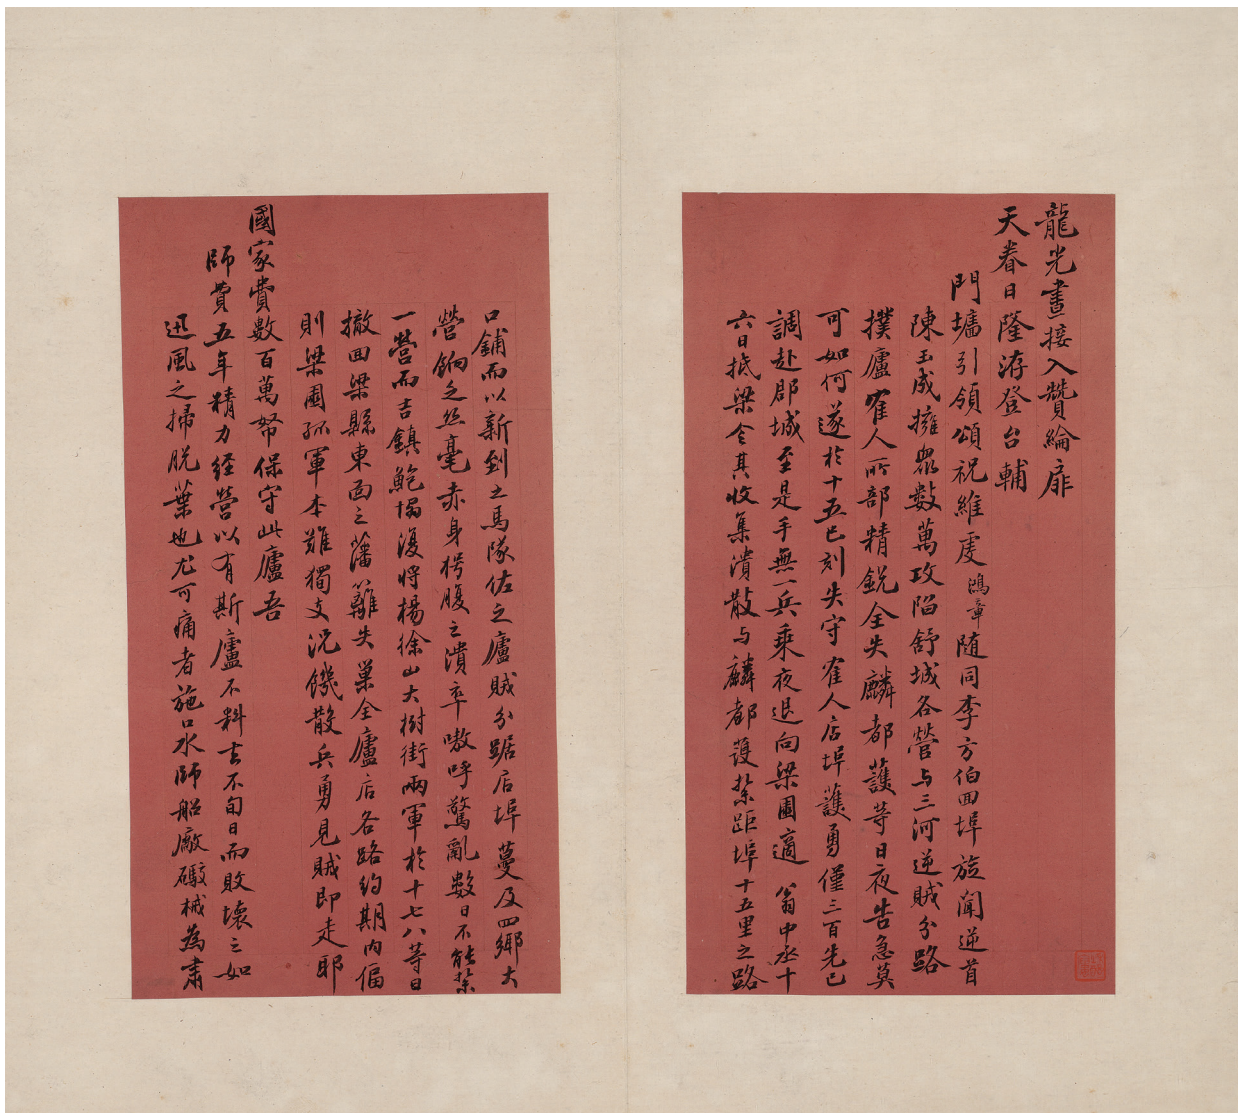 龍光晝接入贊綸扉
天眷日隆洊登台輔
門墻引領頌祝維虔鴻章隨同李方伯回埠旋聞逆首
陳玉成擁眾數萬攻陷舒城各營與三河逆賊分路
撲廬寉人所部精銳全失麟都護等日夜告急莫
可如何遂於十五巳刻失守寉人店埠護勇僅三百先已
調赴郡城至是手無一兵乘夜退向梁園適 翁中丞十
六日抵梁令其收集潰散與麟都護紮距埠十五里之路
口鋪而以新到之馬隊佐之廬賊分踞店埠蔓及四鄉大
營餉乏絲毫赤身枵腹之潰卒嗷呼驚亂數日不能紮
一營而吉鎮鮑塲復將楊徐山大樹街兩軍於十七八等日
撤回梁縣東面之藩籬失巢全廬店各路約期內偪
則梁園孤軍本難獨支況饑散兵勇見賊即走耶
國家費數百萬帑保守此廬吾
師費五年精力經營以有斯廬不料去不旬日而敗壞之如
迅風之掃脫葉也尤可痛者施口水師船廠礮械為肅